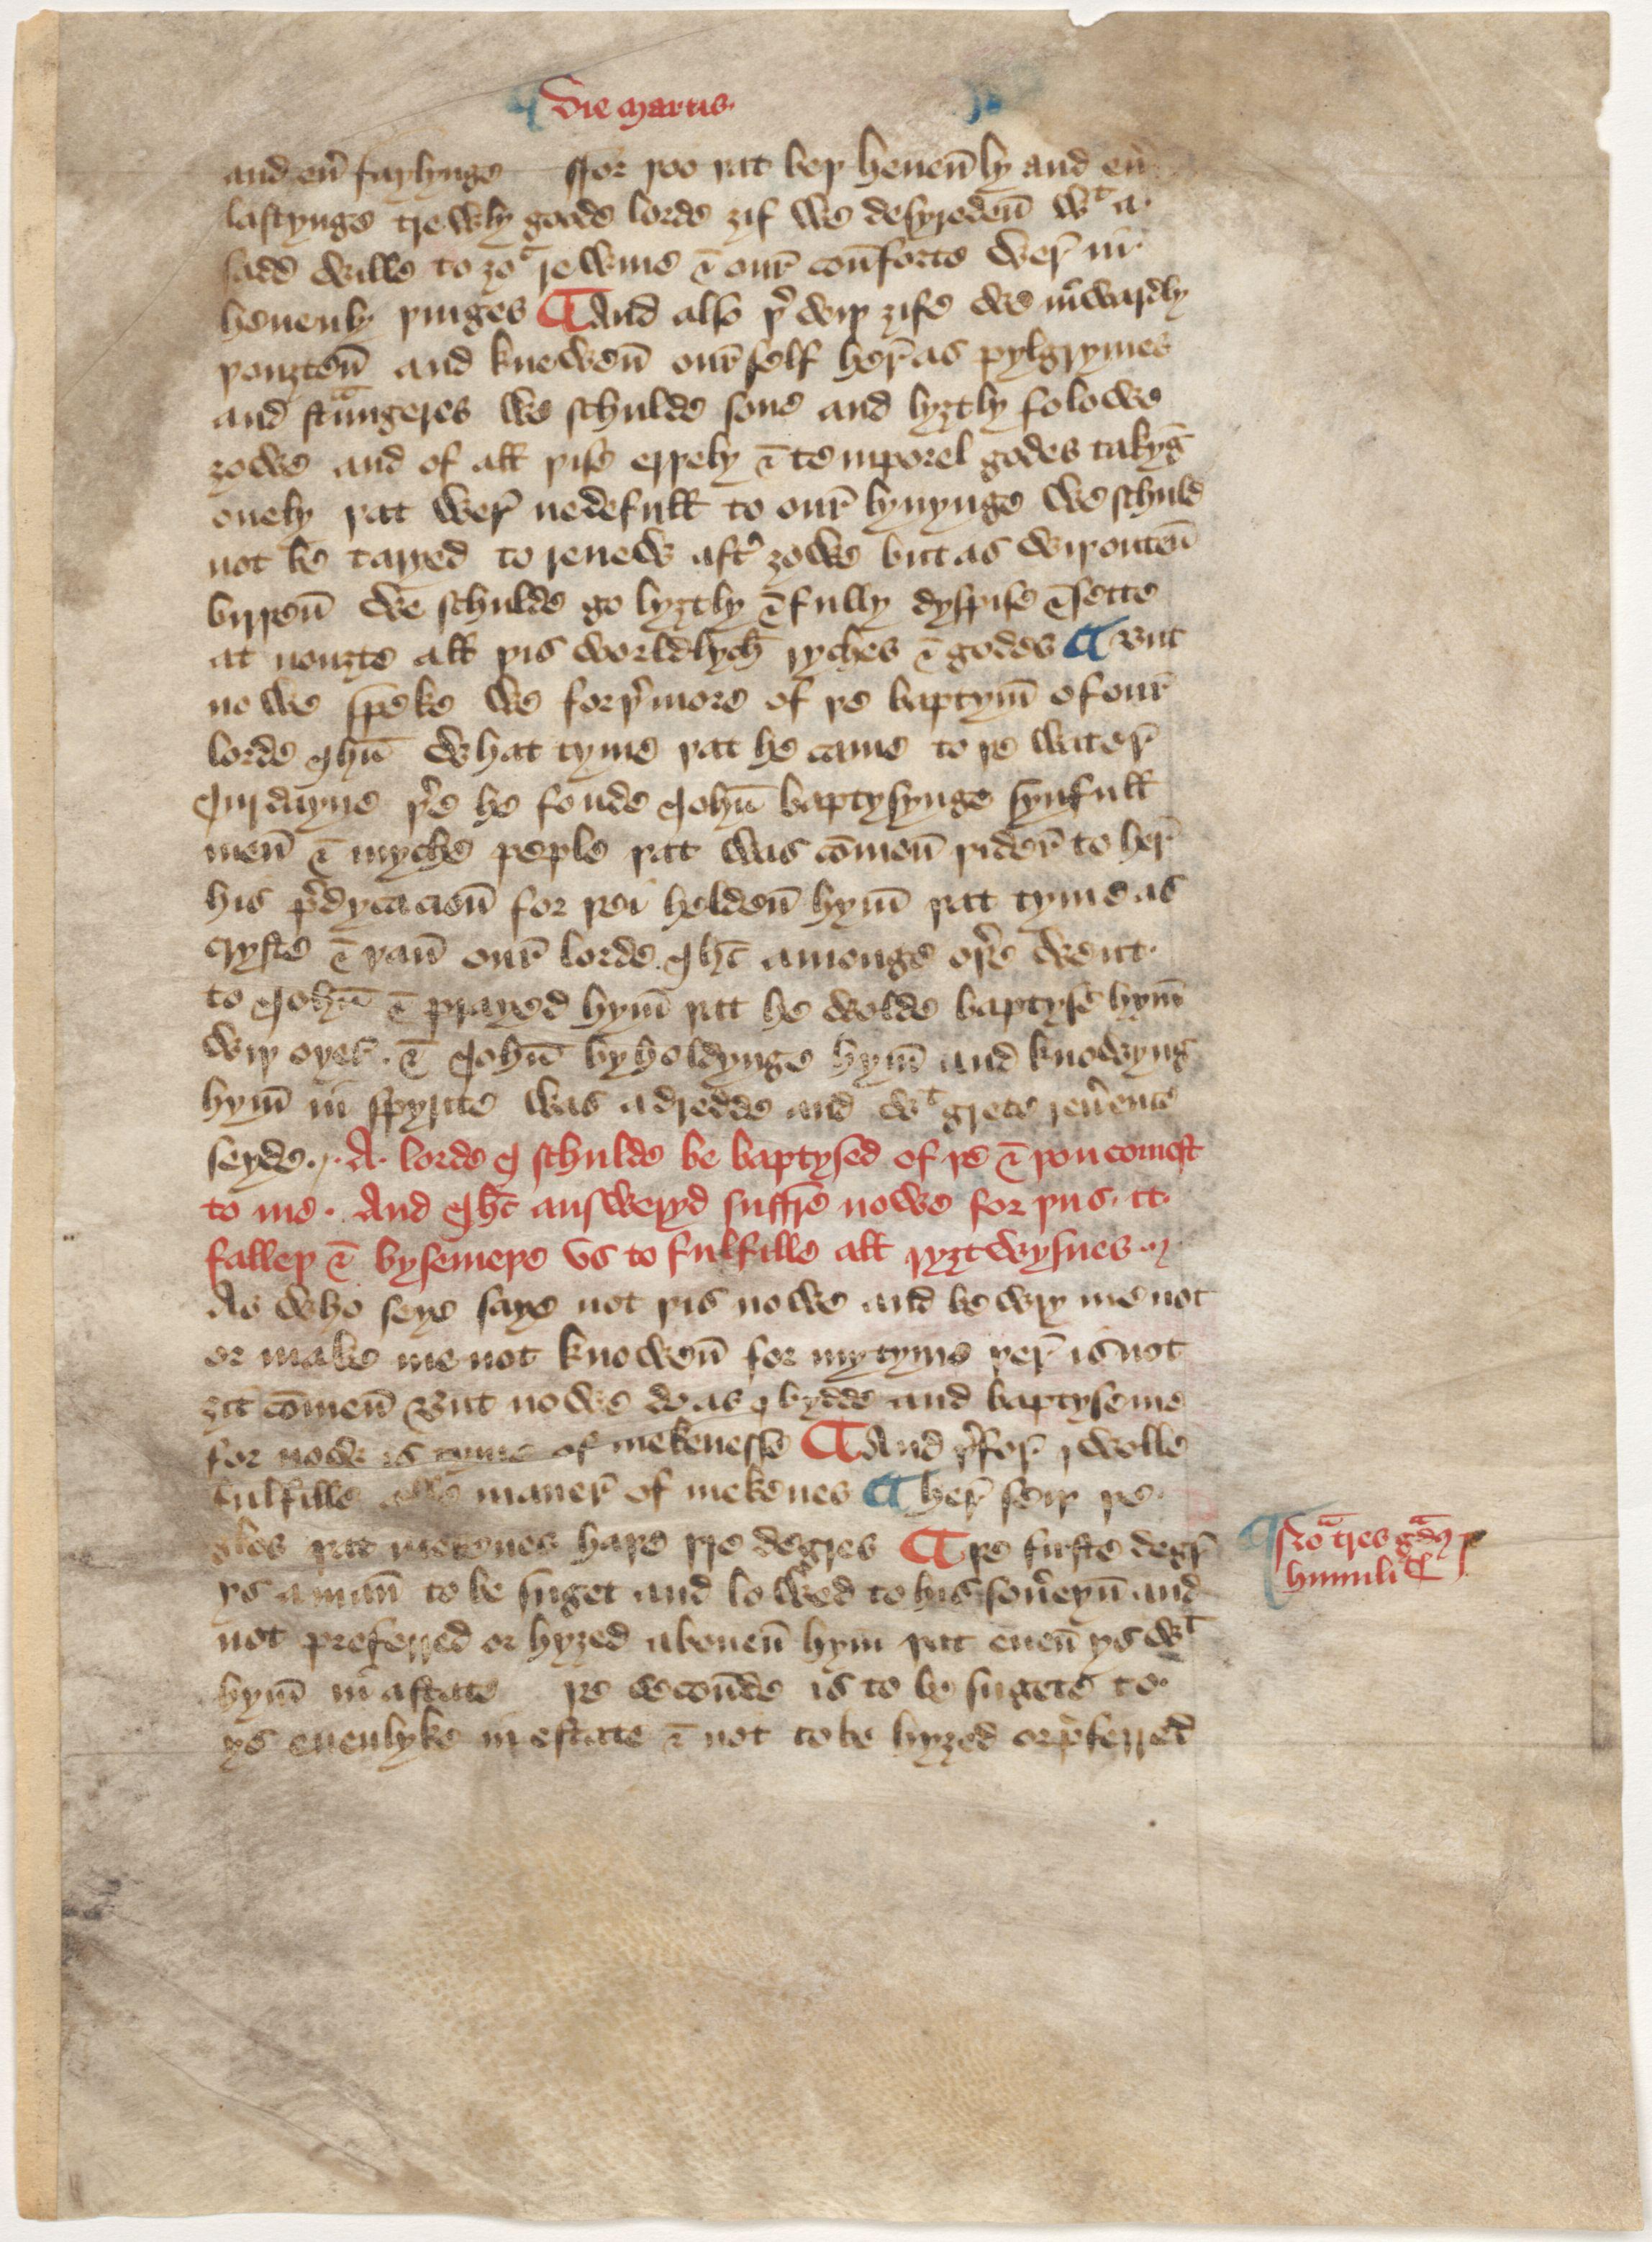 ¶ Die martis
and eu̅ faylynge ffor þoo þat beþ heuen̅ly and eu̅
lastynge trewly goode lorde ȝif we desyreden̅ wᵗ a
sadd wille to ȝoᵘ rewme ⁊ our̅ con̅forte wer̅ in̅
heuenly þinges ¶ And also þ̉wiþ ȝife we in̅wardly
þouȝten̅ and knewen̅ our̅self her̅ as pylgrymes
and stᵃungeres we schulde sone and lyȝtly folowe
ȝowe and of all þise erþely ⁊ temporel godes takyg̅
onely þat wer̅ nedefull to our̅ lyuynge we schuld
not be taryed to renew aft̉ ȝowe but as wiþouten̅
birþen̅ we schulde go lyȝtly ⁊ fully dyspise ⁊ sette
at nouȝte all þis worldlych̅ ryches ⁊ godes ¶ But
nowe speke we forþ̉more of þe baptym̅ of our̅
lorde Jhu̅ what tyme þat he came to þe water̅
Jurdayne þ̉e he fonde Johu̅ baptysynge synfull
men̅ ⁊ myche peple þat was co̅men̅ þider̅ to her̅
his p̉dycacion̅ for þei helden̅ hym̅ þat tyme as
cryste ⁊ þan̅ our̅ lorde Jhc̅ amonge oþ̉e went
to Johu̅ ⁊ prayed hym̅ þat he wolde baptyse hym̅
wiþ oþer̅ . ⁊ Johu̅ byholdynge hym̅ and knowyng
hym̅ in̅ spyrite was adredde and wᵗ grete reu̅ence
seyde . A lorde J schulde be baptysed of þe ⁊ þou comest
to me . And Jhc̅ answeryd suffre nowe for þus it
falleþ ⁊ bysemeþe vs to fulfille all ryȝtwysnes
As who seye saye not þis nowe and bewry me not
or make me not knowen̅ for my tyme ȝer̅ is not
ȝit co̅men̅ But nowe do as J bydde and baptyse me
for now is tyme of mekenesse ¶ And þ̉for̅ J wolle
fulfille alle maner̅ of mekenes ¶ her̅ seiþ þe
glos þat mekenes haþe þre degres ¶ þe firste degr̅
ys a man̅ to be suget and lowed to his sou̅eyn̅ and
not preferred or hyȝed abouen̅ hym þat euen̅ ys wᵗ
hym̅ in̅ astate þe secou̅de is to be sugete to
ys euenlyke in estate ⁊ not to be hyȝed or p̉ferred
¶ Noᵃ tres gᵃdꝯ
humili